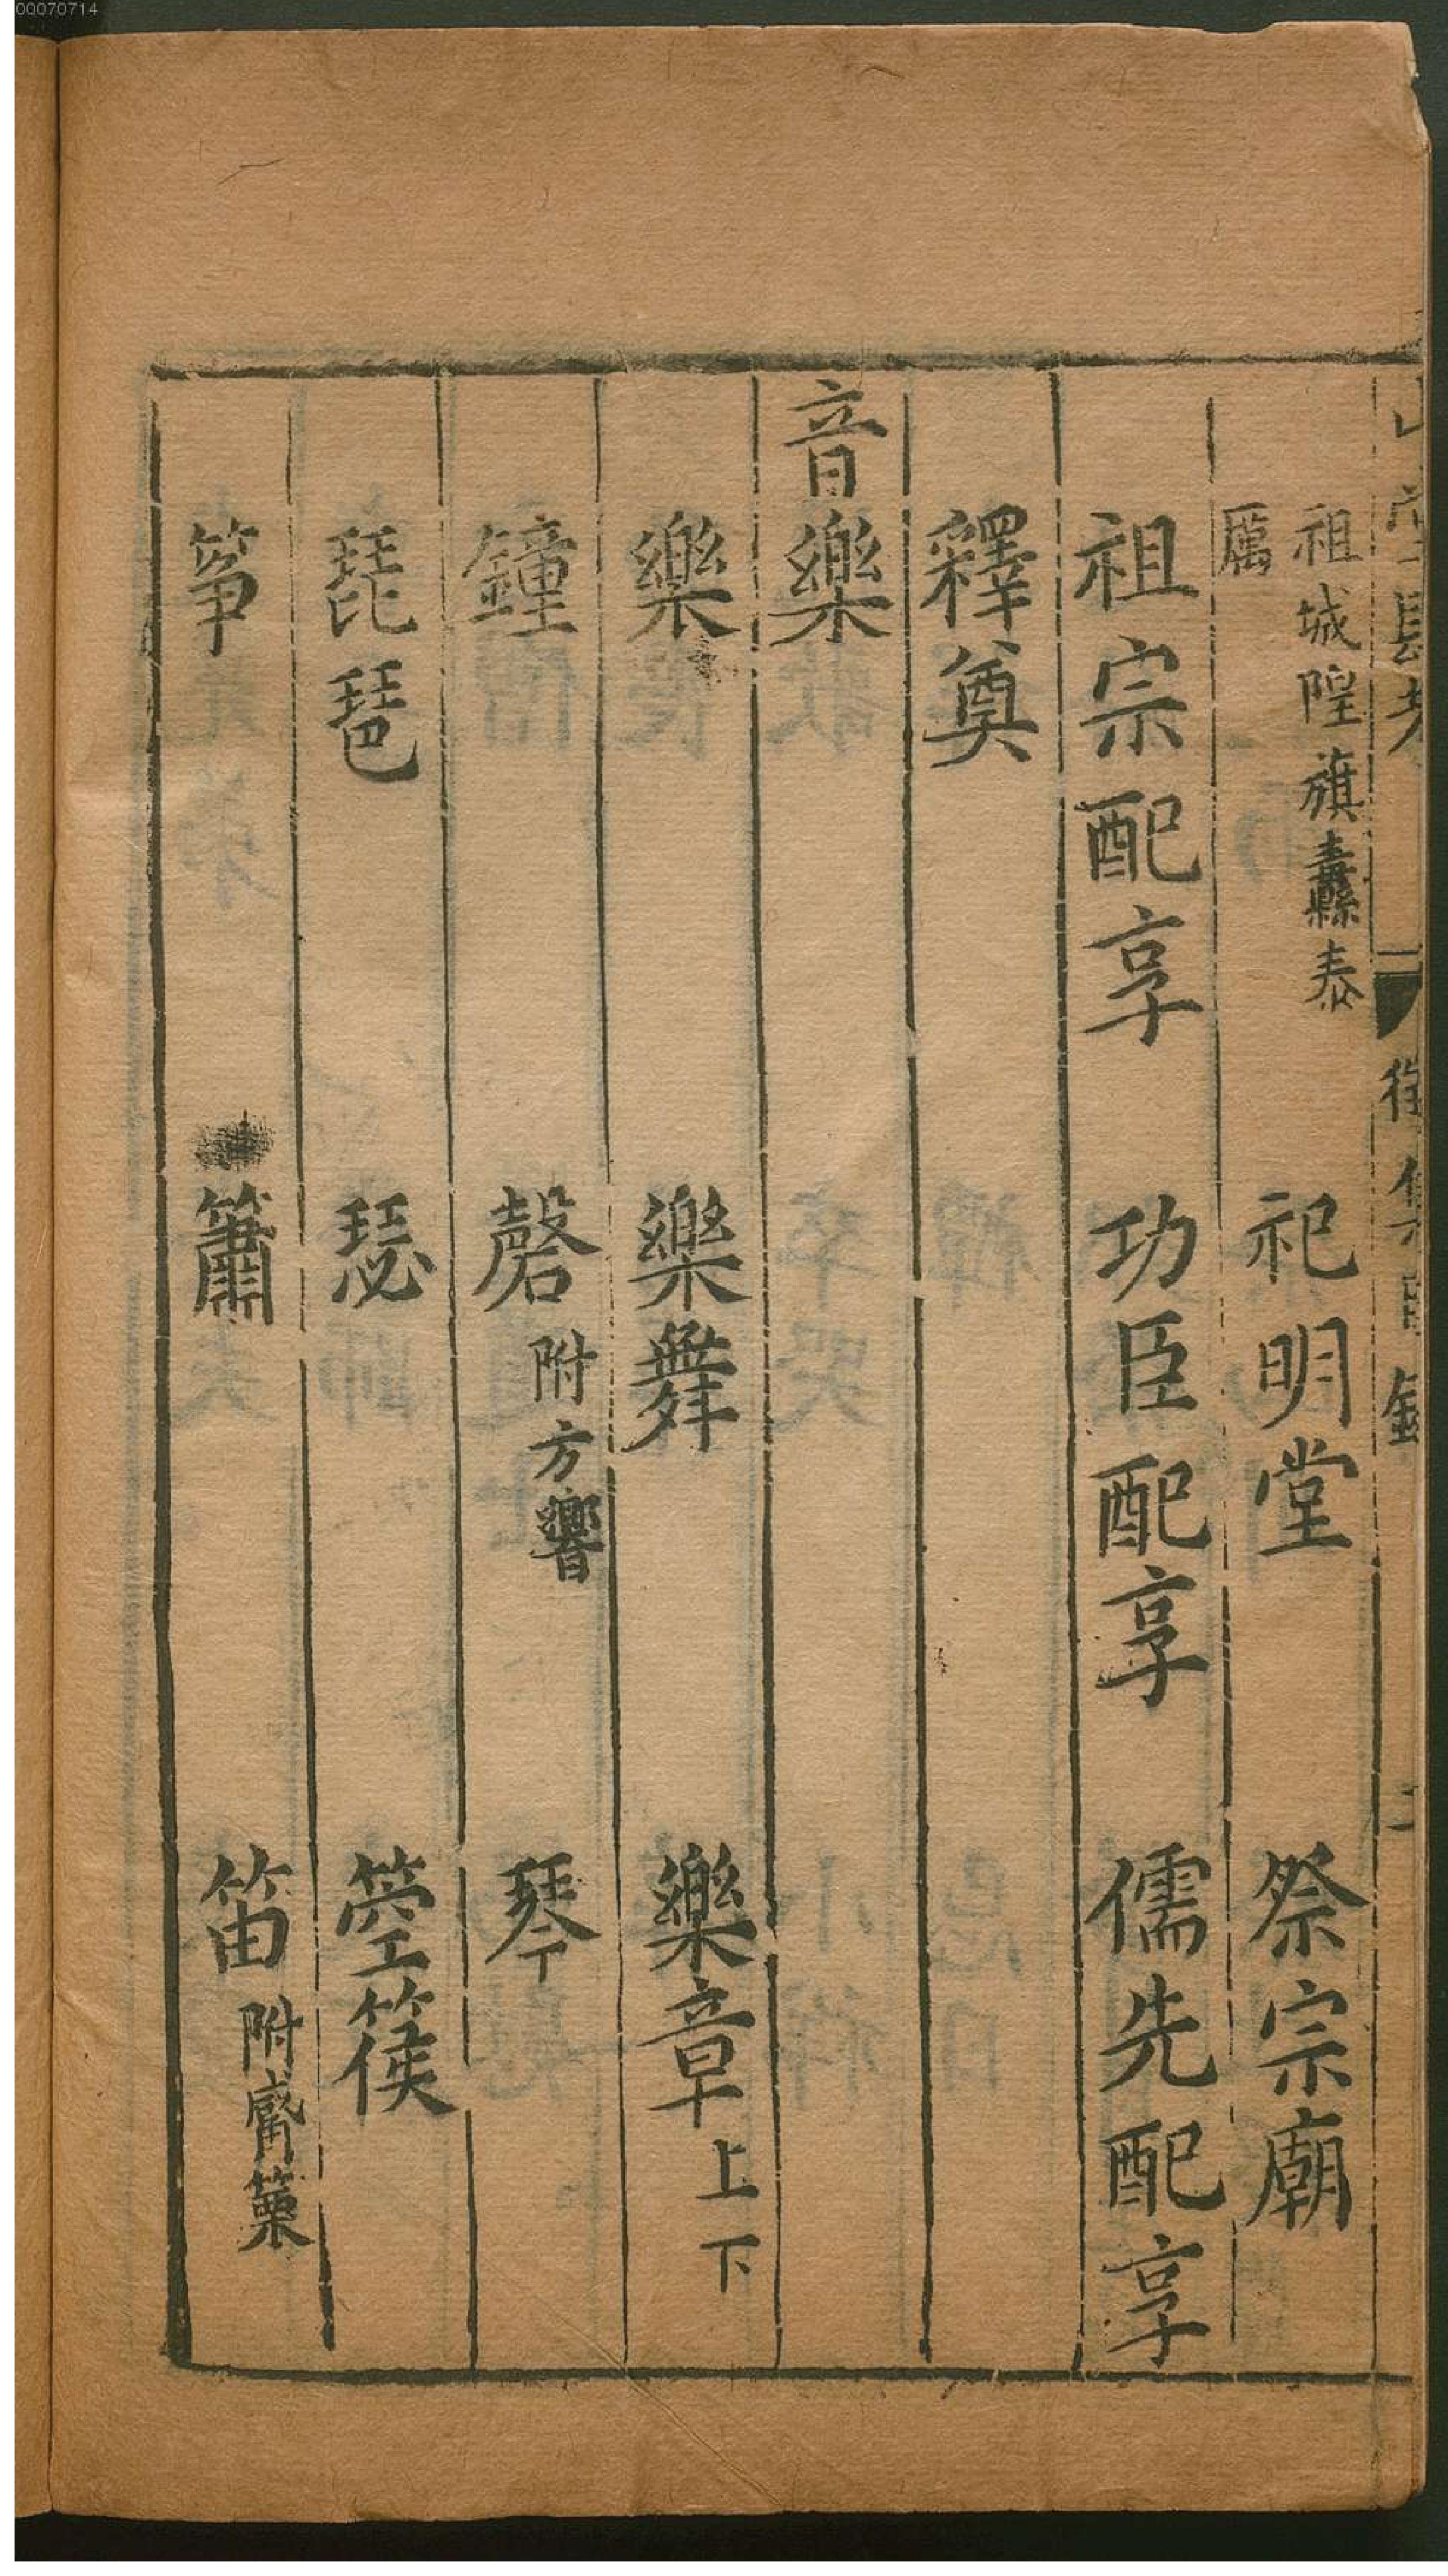 00070714
祖城隍旗纛泰厲 祀明堂 祭宗廟
祖宗配享 功臣配享 儒先配享
釋奠
音樂
樂 樂舞 樂章上下
鐘 磬附方響 琴
琵琶 瑟 箜篌
箏 簫 笛附觱篥